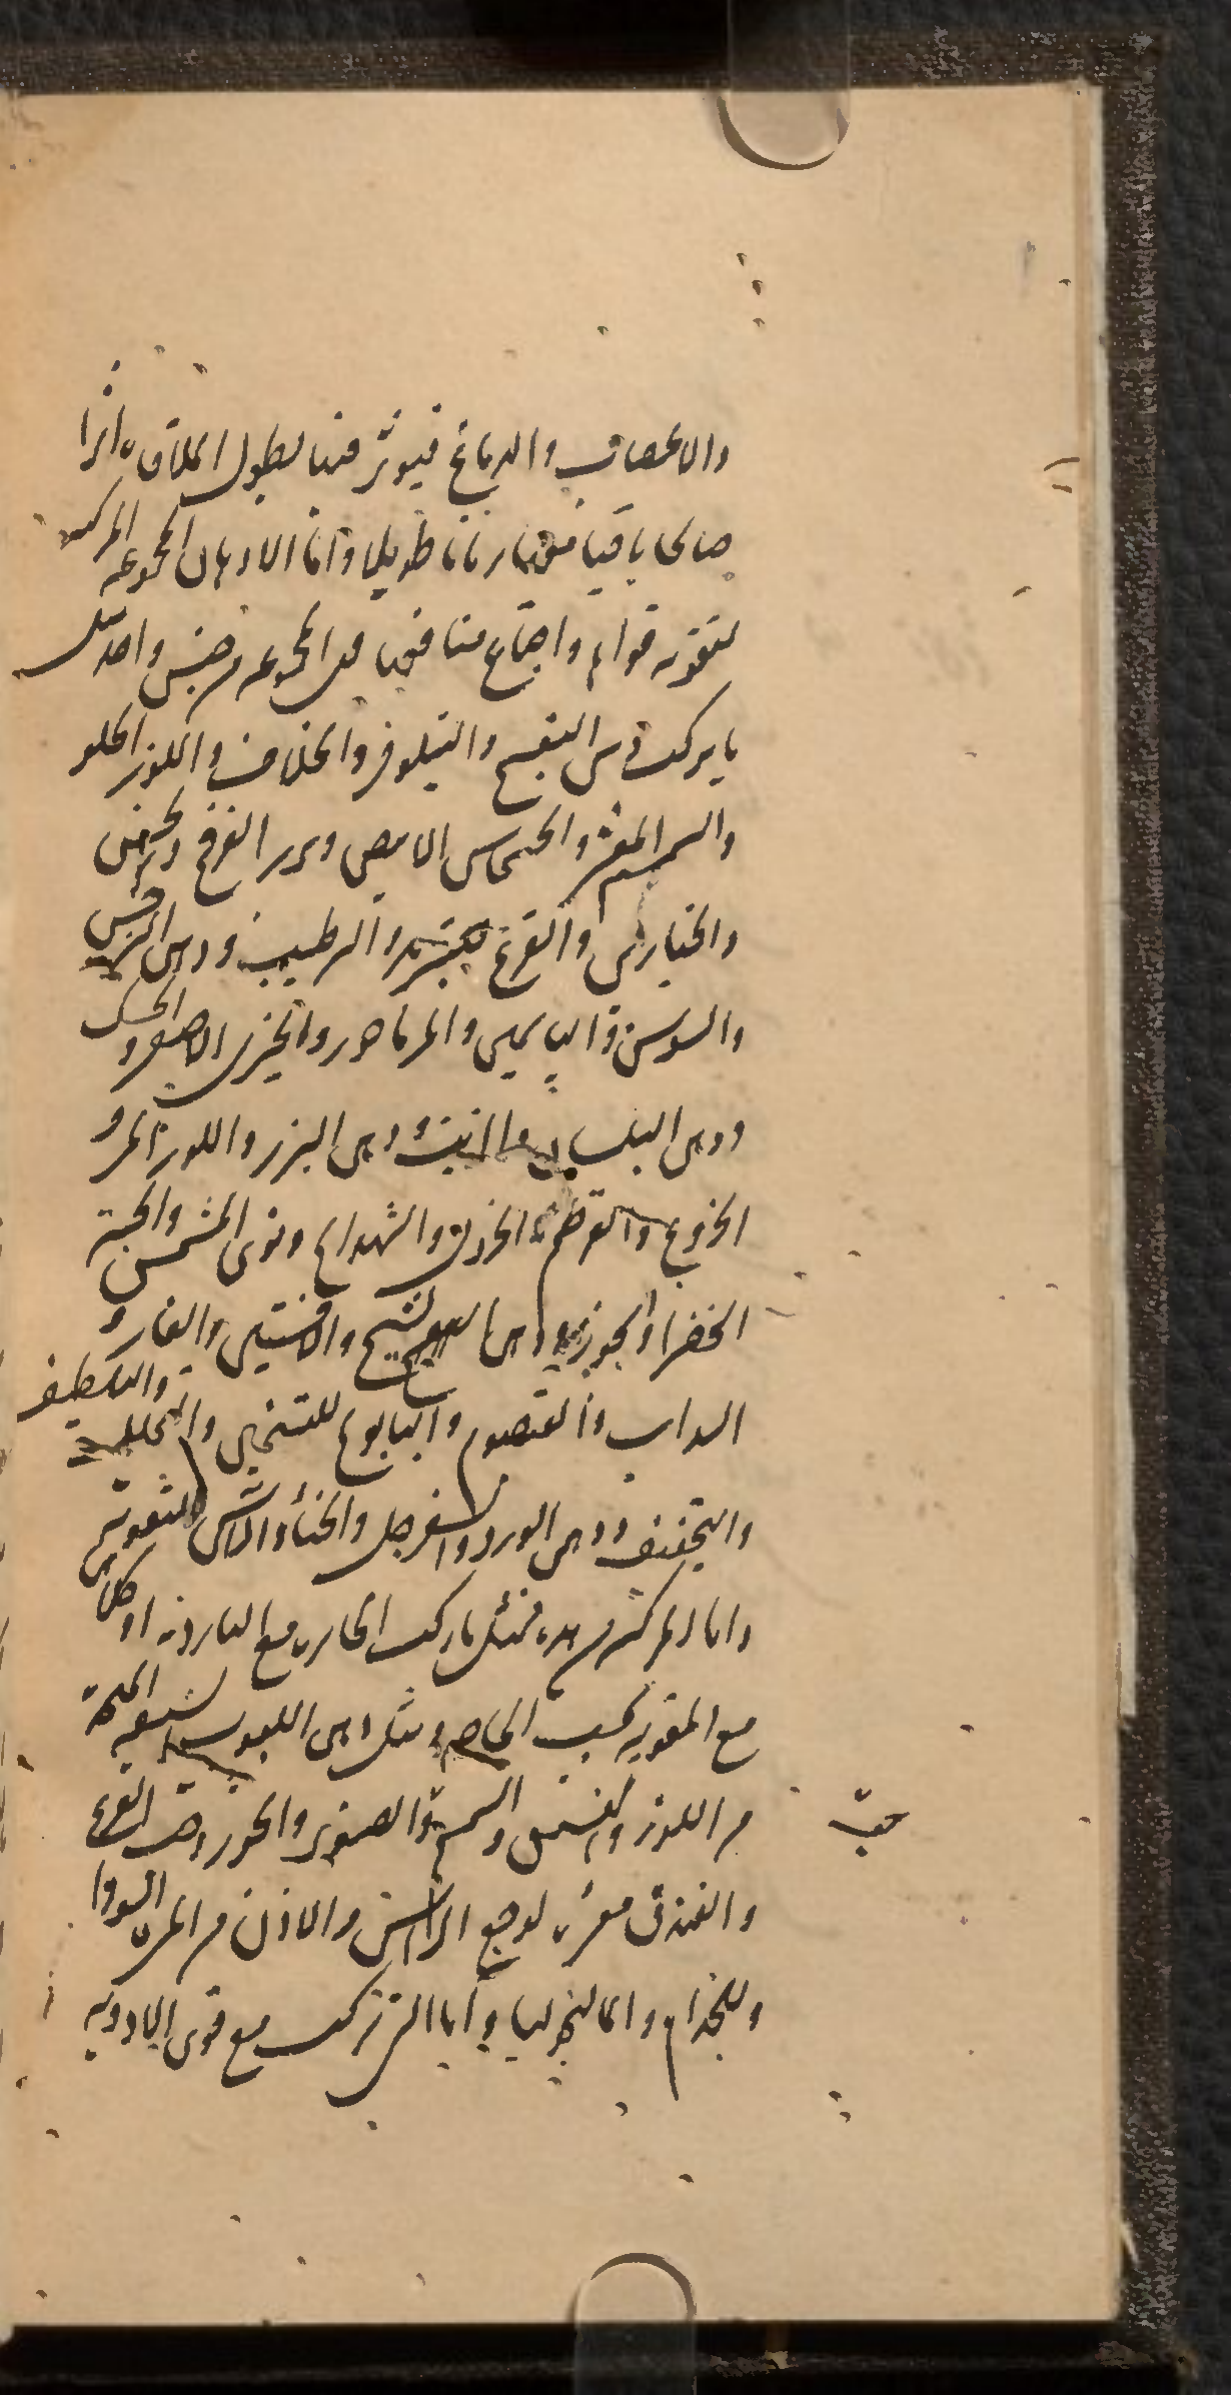 والاعصاب والدماغ فيوثر فيها لطول الملاقاة اثرا
صالحا باقيا فيها زمانا طويلا واما الادهان المجموعه المركبه
لتقويه قواه واجتماع منافعها من المجموعه من جنس واحد مثل
ما يركب من البنفسج والنيلوفر والخلاف واللوز الحلو
والسمسم المقشر والخشخاش الابيض وبزر القرع والخس
والخيارين والقرع للتبريد والترطيب ودهن النرجس
والسوسن والياسمين والمرماحوز والخيري الاصفر والحسك
ودهن البلسان والزيت ودهن البزر واللوز المر و
الخروع والقرطم والخردل والشهدانج ونوى المشمش والحبة
الخضرا والجوز ودهن الشيح والافسنتين والغار و
السداب والقيصوم والبابونج للتسخين والتحليل والتلطيف
والتجفيف ودهن الورد والسفرجل والحناء والاس للتقويه
واما المركبه من هذه فمثل ما يركب الحاره مع البارده او كلاهن
مع المقويه بحسب الحاجه ومثل دهن اللبوب السبعه المتخذة
من اللوز والفستق والسمسم والصنوبر والجوز وحب القرع
والفندق مقشره لوجع الراس والاذن من المره السودا
وللجذام والمالنخوليا واما التي تركب مع قوى الادويه
حبّ